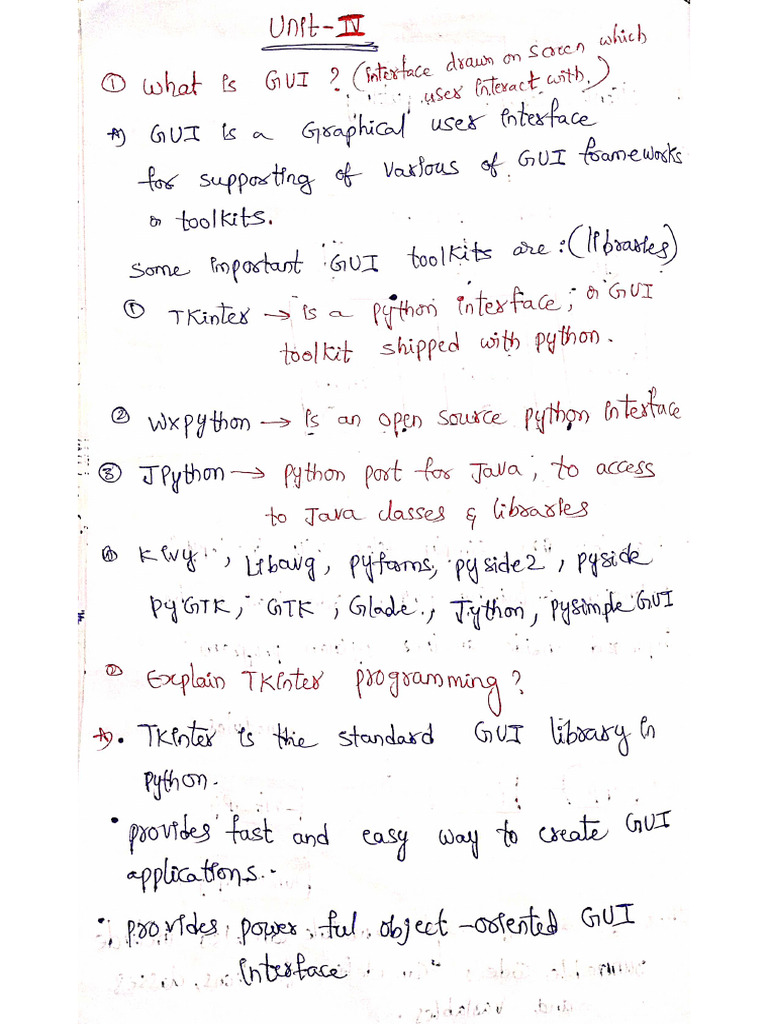 Unit-IV
① What is GUI ? (interface drawn on screen which
user interact with.)
A) GUI is a Graphical user interface
for supporting of various of GUI frameworks
or toolkits.
Some important GUI toolkits are : (libraries)
① TKinter → is a python interface, or GUI
toolkit shipped with python.
② Wxpython → is an open source python interface
③ JPython → python port for Java, to access
to Java classes & libraries
④ Kivy , Libavg, pyforms, pyside2, pyside
PyGTK, GTK, Glade, Jython, pysimple GUI
② Explain TKinter programming?
A). TKinter is the standard GUI library in
python.
• provides fast and easy way to create GUI
applications.
• provides powerful object-oriented GUI
interface.